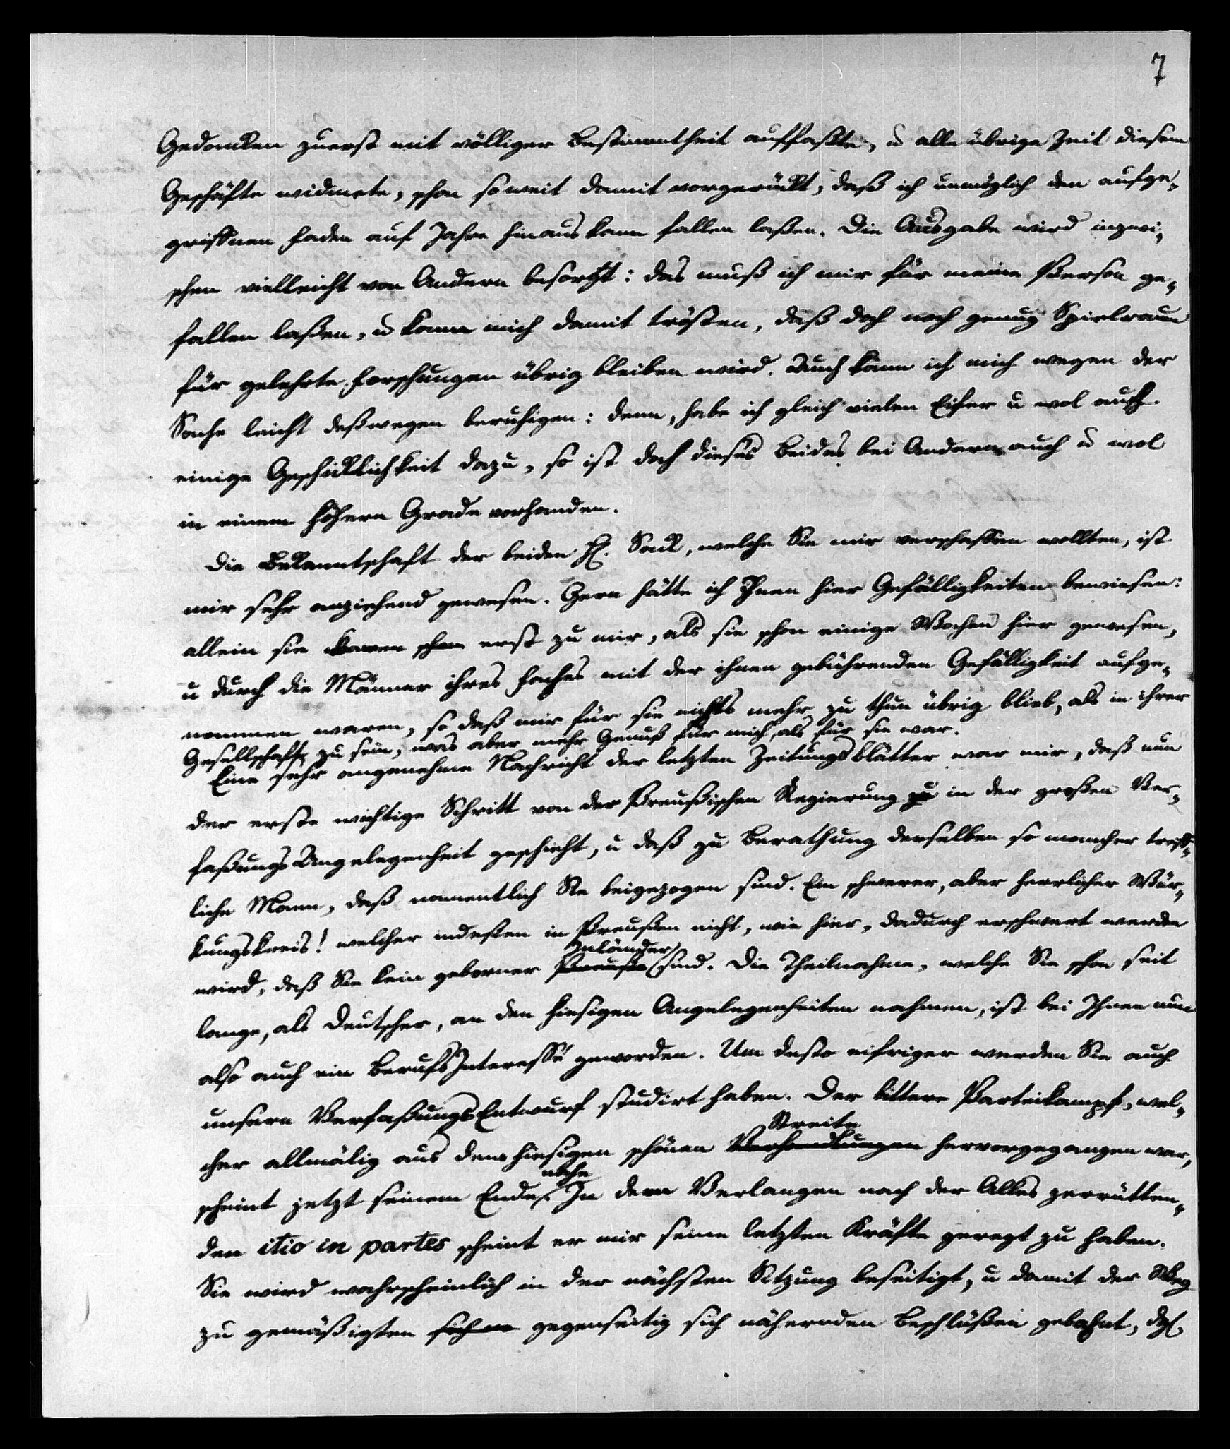 7
Gedanken zuerst mit völliger Bestimmtheit auffaßte, u alle übrige Zeit diesem
Geschäfte widmete, schon soweit damit vorgerückt, daß ich unmöglich den aufge-
griffnen Faden auf Jahre hinaus kann fallen laßen. Die Ausgabe wird inzwi-
schen vielleicht von Andern besorgt: das muß ich mir für meine Person ge-
fallen laßen, u kann mich damit trösten, daß doch noch genug Spielraum
für gelehrte Forschungen übrig bleiben wird. Auch kann ich mich wegen der
Sache leicht deßwegen beruhigen: denn, habe ich gleich vielen Eifer u wol auch
einige Geschicklichkeit dazu, so ist doch dieses Beides bei Andern auch u wol
in einem höhern Grade vorhanden.
Die Bekanntschaft der beiden H. Sack, welche Sie mir verschaffen wollten, ist
mir sehr anziehend gewesen. Gern hätte ich Ihnen hier Gefälligkeiten bewiesen:
allein sie kamen schon erst zu mir, als sie schon einige Wochen hier gewesen,
u durch die Männer ihres Faches mit der ihnen gebührenden Gefälligkeit aufge-
nommen waren, so daß mir für sie nichts mehr zu thun übrig blieb, als in ihrer
Gesellschaft zu sein, was aber mehr Genuß für mich als für sie war.
Eine sehr angenehme Nachricht der letzten Zeitungsblätter war mir, daß nun
der erste wichtige Schritt von der Preußischen Regierung zu in der großen Ver-
faßungs Angelegenheit geschieht, u daß zu Berathung derselben so mancher treff-
liche Mann, daß namentlich Sie beigezogen sind. Ein schwerer, aber herrlicher Wür-
kungskreis! welcher indeßen in Preußen nicht, wie hier, dadurch erschwert werden
wird, daß Sie kein geborner Preuße Inländer sind. Die Theilnahme, welche Sie schon seit
lange, als Deutscher, an den hiesigen Angelegenheiten nahmen, ist bei Ihnen nun
also auch ein BerufsInteresse geworden. Um desto eifriger werden Sie auch
unsern VerfaßungsEntwurf studirt haben. Der bittere Parteikampf, wel-
cher allmälig aus dem hiesigen schönen Verhandlungen Streite hervorgegangen war,
scheint jetzt seinem Ende nahe. In dem Verlangen nach der Alles zerrütten-
den itio in partes scheint er mir seine letzten Kräfte geregt zu haben.
Sie wird wahrscheinlich in der nächsten Sitzung beseitigt, u damit der Weg
zu gemäßigten gegenseitig sich nähernden Beschlüßen gebahnt,